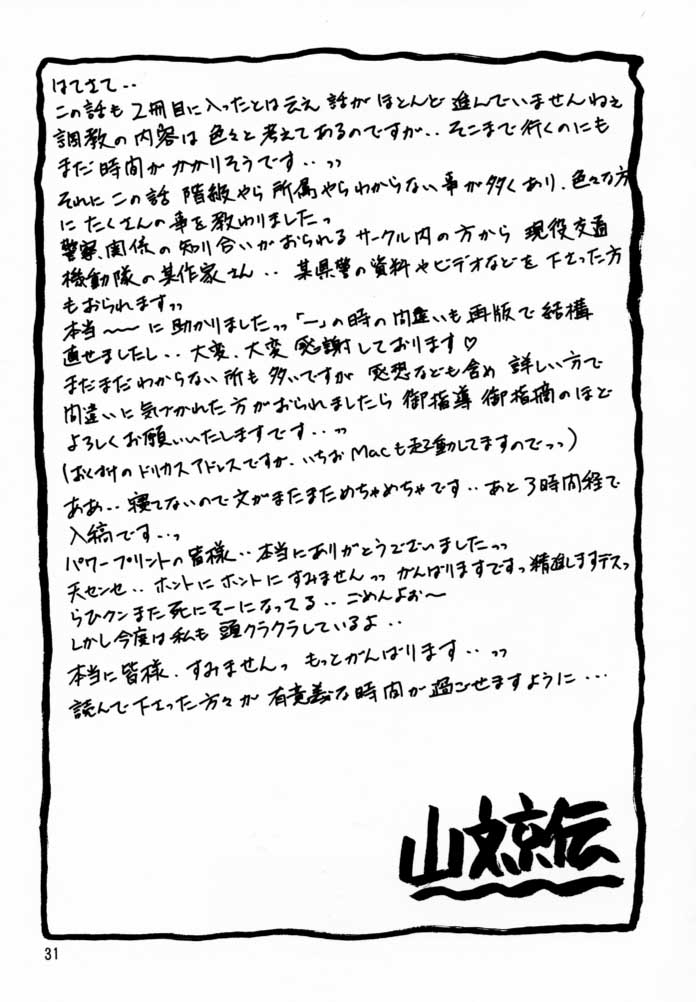 はてさて‥
この話も2冊目に入ったとは云え 話がほとんど進んでいませんねぇ
調教の内容は色々と考えてあるのですが‥そこまで行くのにも
まだ時間がかかりそうです‥っっ
それにこの話 階級やら所属やらわからない事が多くあり、色々な方
にたくさんの事を教わりましたっ
警察関係の知り合いがおられるサークル内の方から 現役交通
機動隊の某作家さん‥ 某県警の資料やビデオなどを下さった方
もおられますっっ
本当〜〜に助かりましたっっ「一」の時の間違いも再版で結構
直せましたし‥大変、大変感謝しております♡
まだまだわからない所も多いですが 感想なども含め 詳しい方で
間違いに気づかれた方がおられましたら御指導 御指摘のほど
よろしくお願いいたしますです‥っっ
(おくづけのドリカスアドレスですが、いちおMacも起動してますのでっっ)
ああ‥寝てないので文がまたまためちゃめちゃです‥あと3時間程で
入稿です‥っ
パワープリントの皆様‥本当にありがとうございましたっっ
天センセ‥ホントにホントにすみませんっっ がんばりますですっ精進しますデスっ
らひクンまた死にそーになってる‥ごめんよぉ〜
しかし今度は私も 頭クラクラしているよ‥
本当に皆様、すみませんっ もっとがんばります‥っっ
読んで下さった方々が 有意義な時間が過ごせますように…
山文京伝
31